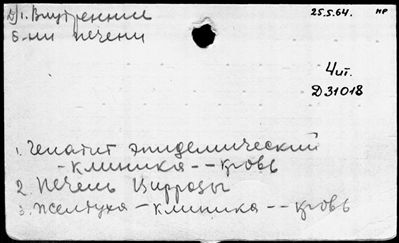 Д/1. Внутренние
б-ни печени
25.5.64. НР
Чит.
Д31018
1. Гепатит эпидемический
– клиника -- кровь
2. Печень Циррозы
3. Желтуха – клиника -- кровь